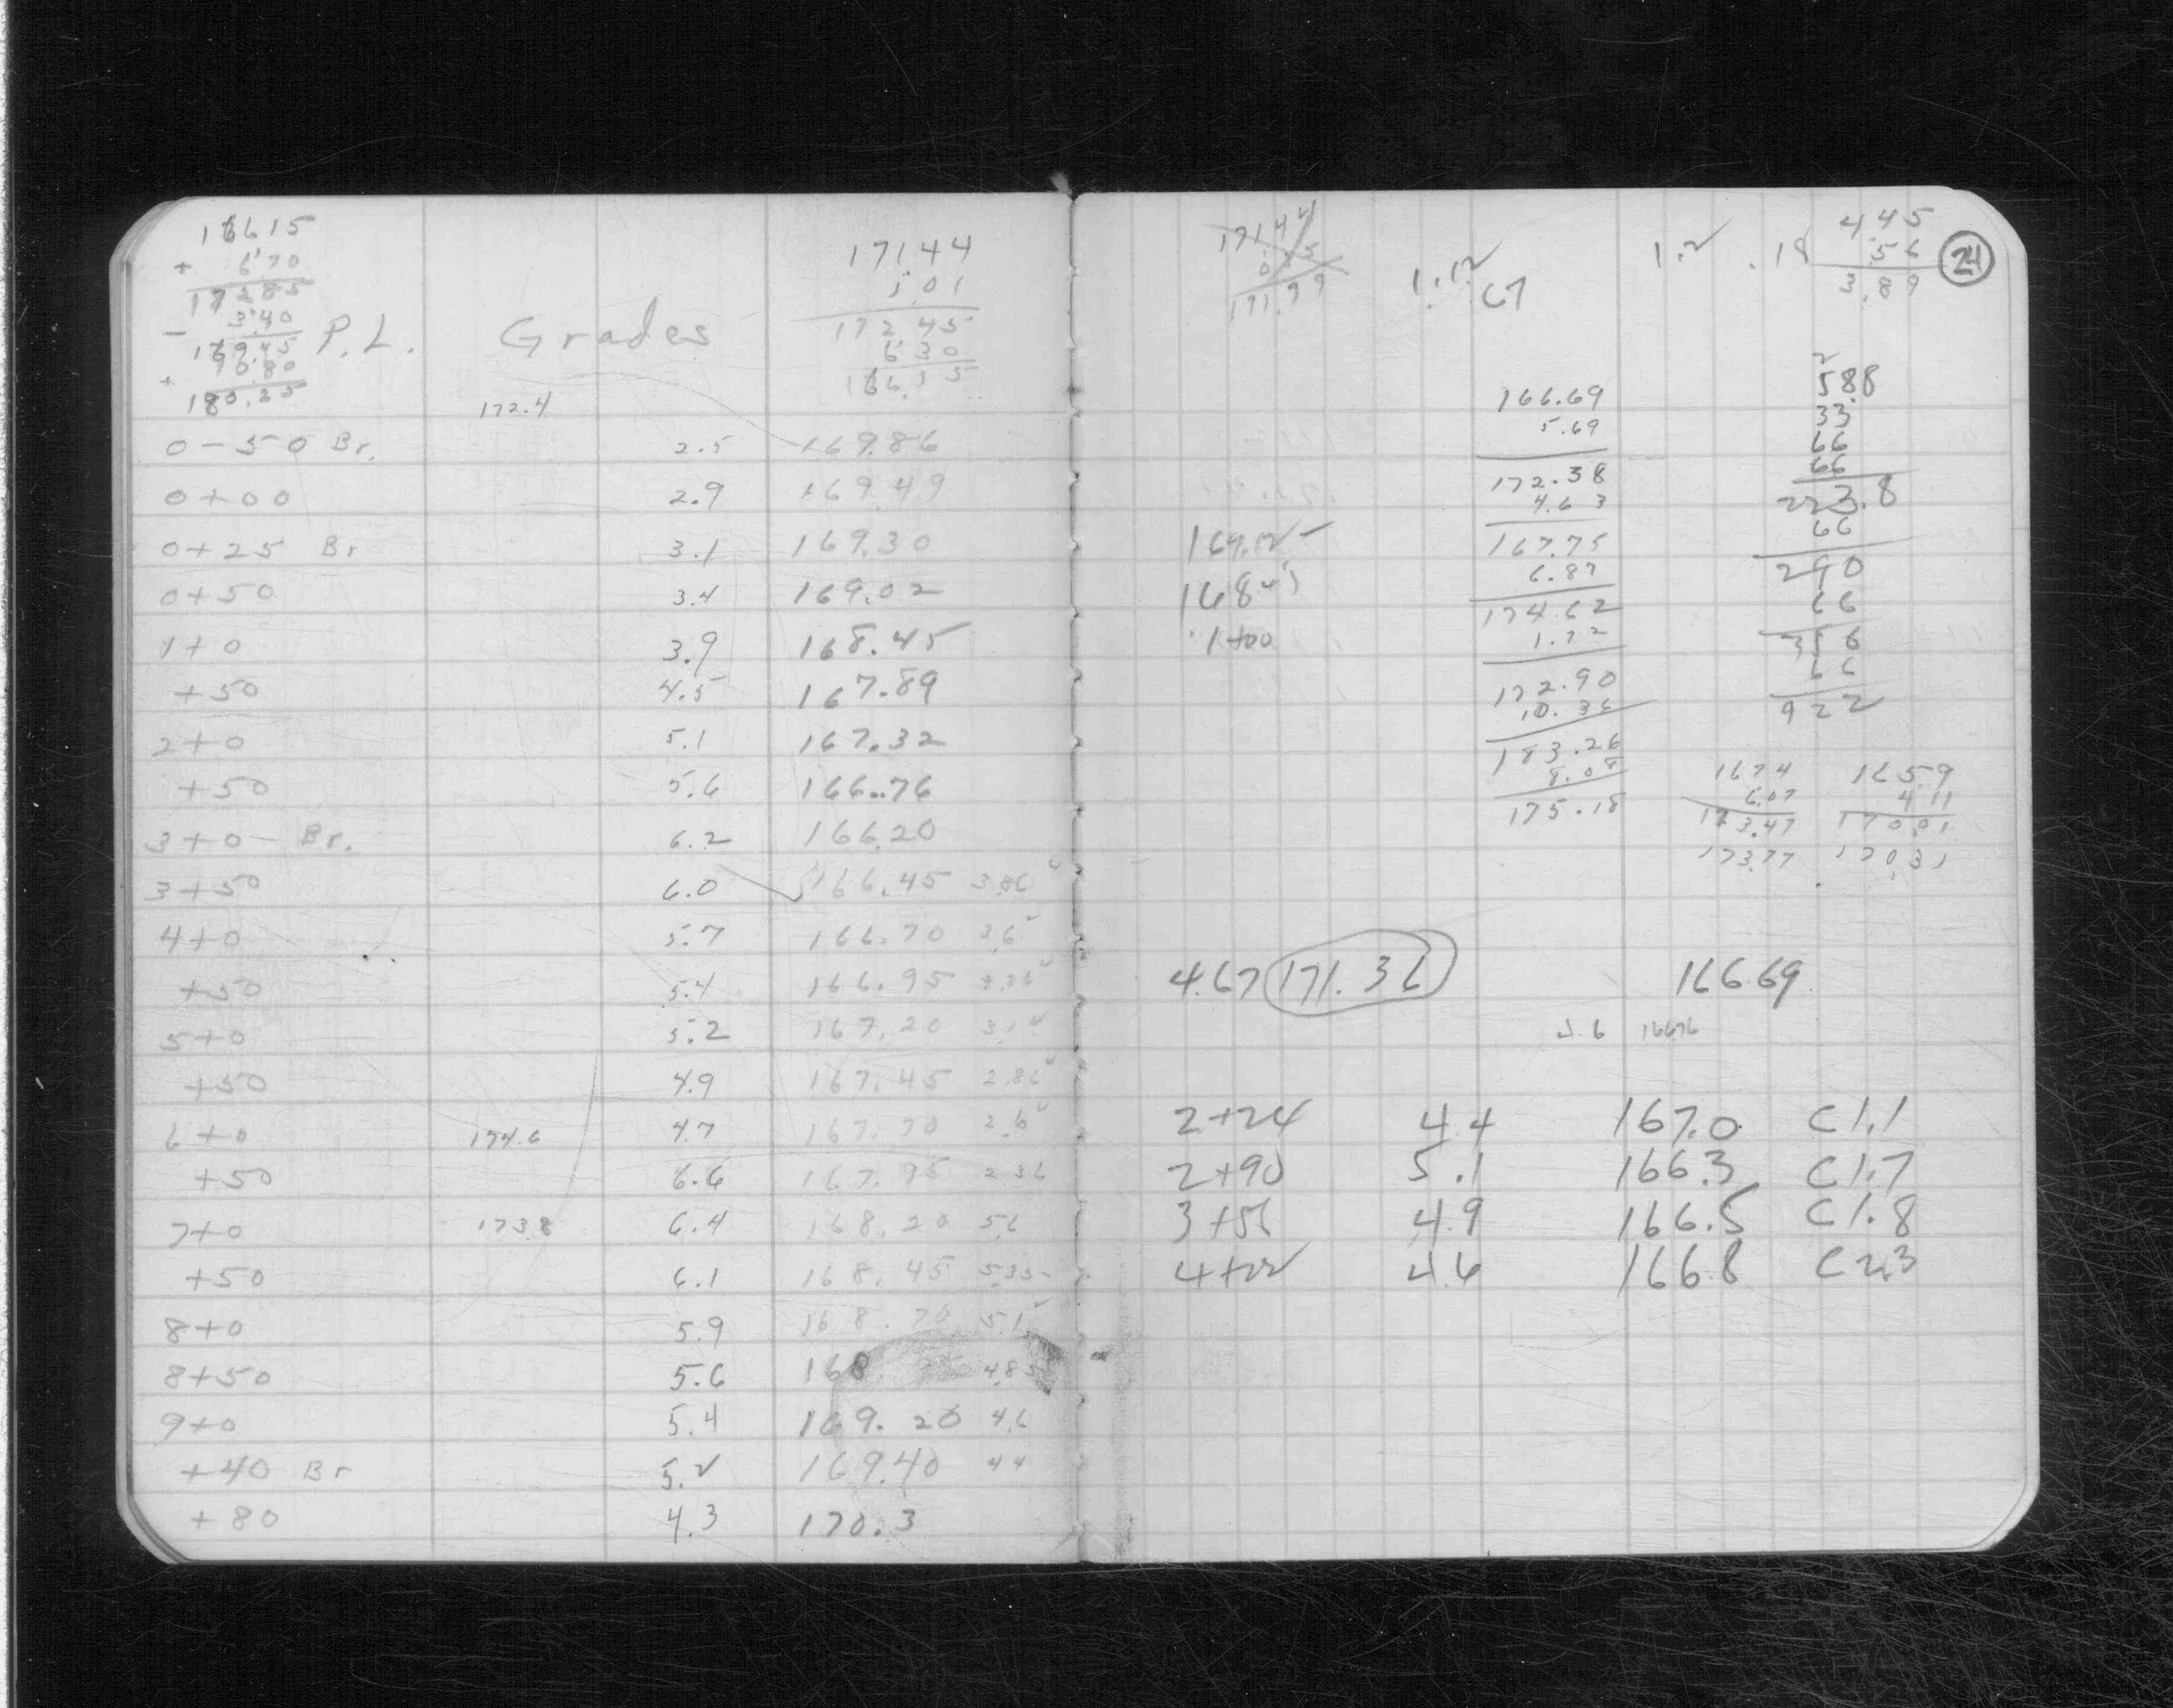 166.15
+ 6.70
172.85
- 3.40
169.45
+ 10.80
180.25
P.L. Grades
171.44
1.01
172.45
6.30
166.15
172.4
0-50 Br. 2.5 169.86
0+00 2.9 169.49
0+25 Br 3.1 169.30
0+50 3.4 169.02
1+0 3.9 168.45
+50 4.5 167.89
2+0 5.1 167.32
+50 5.6 166.76
3+0- Br. 6.2 166.20
3+50 6.0 166.45 3.86
4+0 5.7 166.70 3.6
+50 5.4 166.95 3.36
5+0 5.2 167.20 3.1
+50 4.9 167.45 2.86
6+0 174.6 4.7 167.70 2.6
+50 6.6 167.95 2.36
7+0 173.8 6.4 168.20 5.6
+50 6.1 168.45 5.35
8+0 5.9 168.70 5.1
8+50 5.6 168. 4.85
9+0 5.4 169.20 4.6
+40 Br 5.2 169.40 4.4
+80 4.3 170.3
171.44
171.99
1.12
67
1.2 .18
4.45
.56
3.89
24
166.69
5.69
172.38
4.63
167.75
6.87
174.62
1.72
172.90
10.36
183.26
8.08
175.18
58.8
33
66
66
223.8
66
290
66
356
66
922
1+00
167.4
6.07
173.47
173.77
165.9
4.11
170.01
170.31
4.67 171.36 166.69
4.6 166.76
2+24 4.4 167.0 C1.1
2+90 5.1 166.3 C1.7
3+56 4.9 166.5 C1.8
4+22 4.6 166.8 C2.3